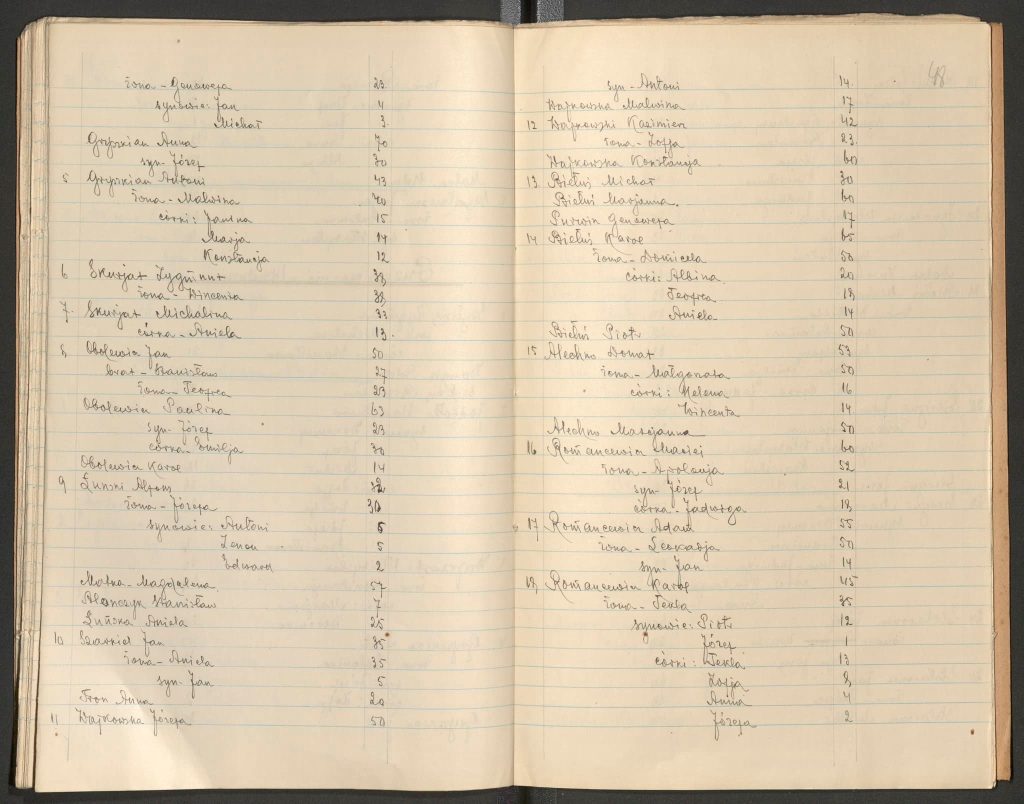 żona - Genowefa 23
synowie: Jan 4
Michał 3
Gryszkian Anna 70
syn - Józef 30
5 Gryszkian Antoni 43
żona - Malwina 40
córki: Janina 15
Marja 14
Konstancja 12
6 Skurjat Zygmunt 38
żona - Wincenta 38
7. Skurjat Michalina 33
córka - Aniela 13.
8, Obolewicz Jan 50
brat - Stanisław 27
żona - Teofila 23
Obolewicz Paulina 63
syn - Józef 23
córka - Emilja 30
Obolewicz Karol 14
9 Łuński Alfons
żona - Józefa 30
synowie: Antoni 6
Zenon 5
Edward 2
Matka - Magdalena 57
Stanisław 7
Łuńska Aniela 25
10 Jan 35
żona - Aniela 35
syn - Jan 5
Tron Anna 20
11 Wajkowska Józefa 50
48
syn - Antoni 14.
Wajkowska Malwina 17
12 Wajkowski Kazimierz 42
żona - Zofja 23
Wajkowska Konstancja 60
13. Bieluś Michał 30
Bieluś Marjanna. 60
Genowefa 17
14 Bieluś Karol 65
żona - Domicela 50
córki: Albina 20
Teofila 18,
Aniela 14
Bieluś Piotr 50
15 Alechno Donat 53
żona - Małgorzata 50
córki: Helena 16
Wincenta 14
Alechno Marjanna 50
16 Romancewicz Maciej 60
żona - Apolonja 52
syn - Józef 21
córka - Jadwiga 18,
17 Romancewicz Adam 55
żona - Leokadja 50
syn - Jan 14
18, Romancewicz Karol 45
żona - Tekla 35
synowie: Piotr 12
Józef 1
córki: Tekla 13
Zofja 8,
Anna 4
Józefa 2